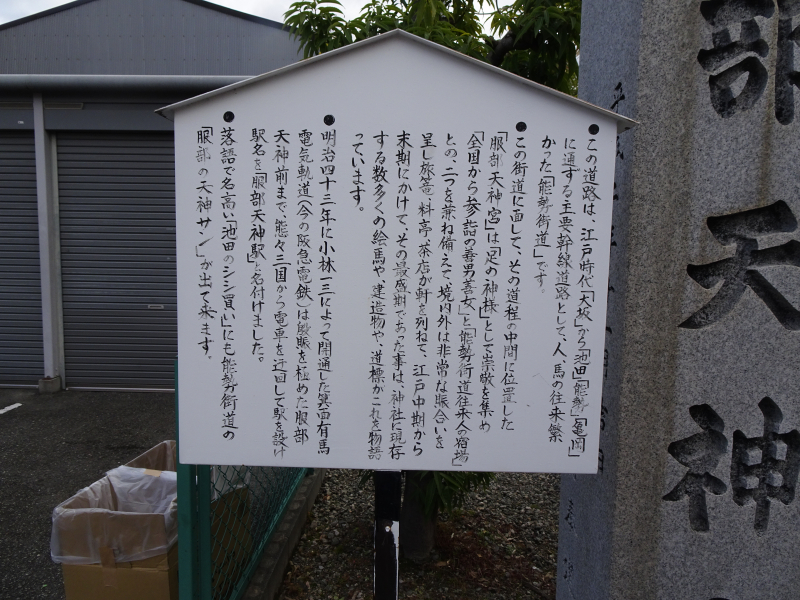 この道路は、江戸時代「大坂」から「池田」「能勢」「亀岡」
に通ずる主要幹線道路として、人、馬の往来繁
かった「能勢街道」です。
この街道に面して、その道程の中間に位置した
「服部天神宮」は「足の神様」として崇敬を集め
「全国から参詣の善男善女」と「能勢街道往来人の宿場」
との、二つを兼ね備えて、境内外は非常な賑合いを
呈し旅篭、料亭、茶店が軒を列ねて、江戸中期から
末期にかけて、その最盛期であった事は、神社に現存
する数多くの絵馬や、建造物や、道標がこれを物語
っています。
明治四十三年に小林一三によって開通した箕面有馬
電気軌道(今の阪急電鉄)は殷賑を極めた服部
天神前まで、態々三国から電車を迂回して駅を設け
駅名を「服部天神駅」と名付けました。
落語で名高い「池田のシシ買い」にも能勢街道の
「服部の天神サン」が出て来ます。
部天神